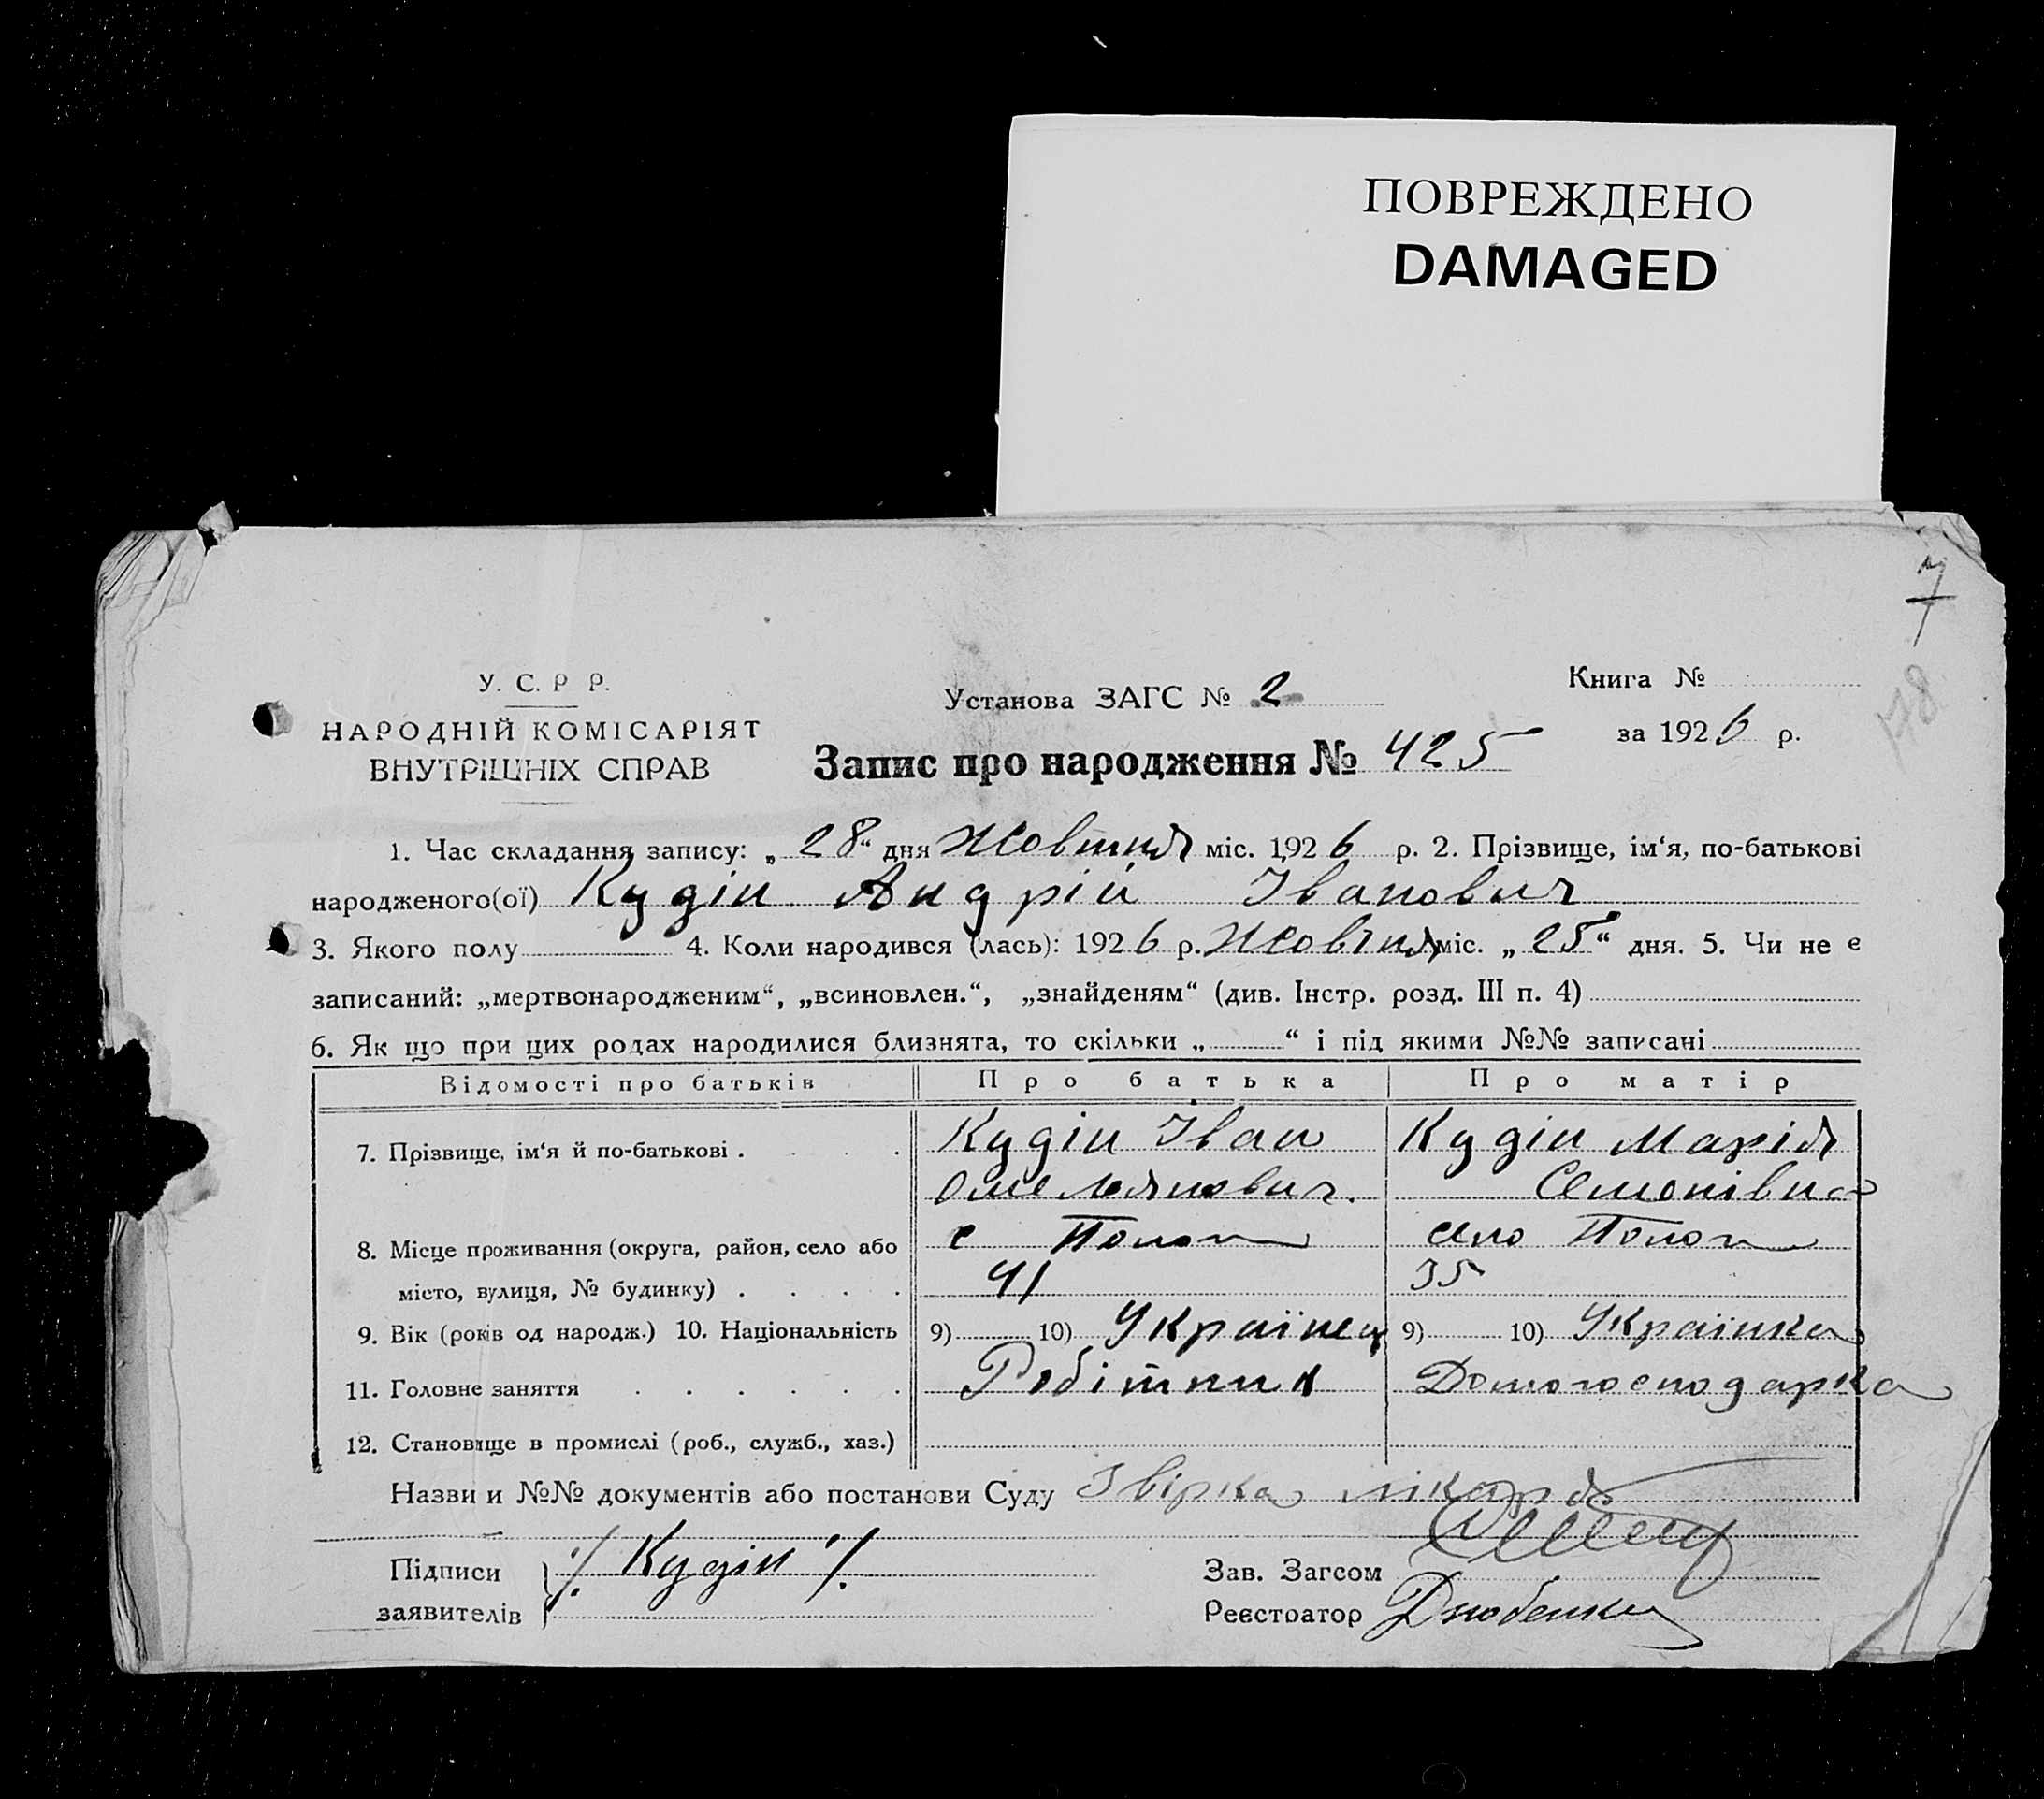 ПОВРЕЖДЕНО
DAMAGED
7
78
У. С. Р Р.
НАРОДНІЙ КОМІСАРІЯТ
ВНУТРІШНІХ СПРАВ
Установа ЗАГС № 2
Книга №
за 1926 р.
Запис про народження № 425
1. Час складання запису: „28“ дня Жовтня міс. 1926 р. 2. Прізвище, ім‘я, по-батькові
народженого(ої) Кудін Андрій Іванович
3. Якого полу 4. Коли народився (лась): 1926 р. Жовтня міс. „25“ дня. 5. Чи не є
записаний: „мертвонародженим“, „всиновлен.“, „знайденям“ (див. Інстр. розд. III п. 4)
6. Як що при цих родах народилися близнята, то скільки „ “ і під якими №№ записані
Відомості про батьків Про батька Про матір
7. Прізвище, ім‘я й по-батькові . . . . Кудін Іван Кудін Марія
Омелянович. Семонівна
8. Місце проживання (округа, район, село або с Пологи село Пологи
місто, вулиця, № будинку) . . . . 41 35
9. Вік (років од народж.) 10. Національність 9) 10) Українец 9) 10) Українка
11. Головне заняття . . . . . . Робітник Домогосподарка
12. Становище в промислі (роб., служб., хаз.)
Назви и №№ документів або постанови Суду Звірка лікаря
Підписи ./. Кудін ./.
заявителів
Зав. Загсом
Реєстратор